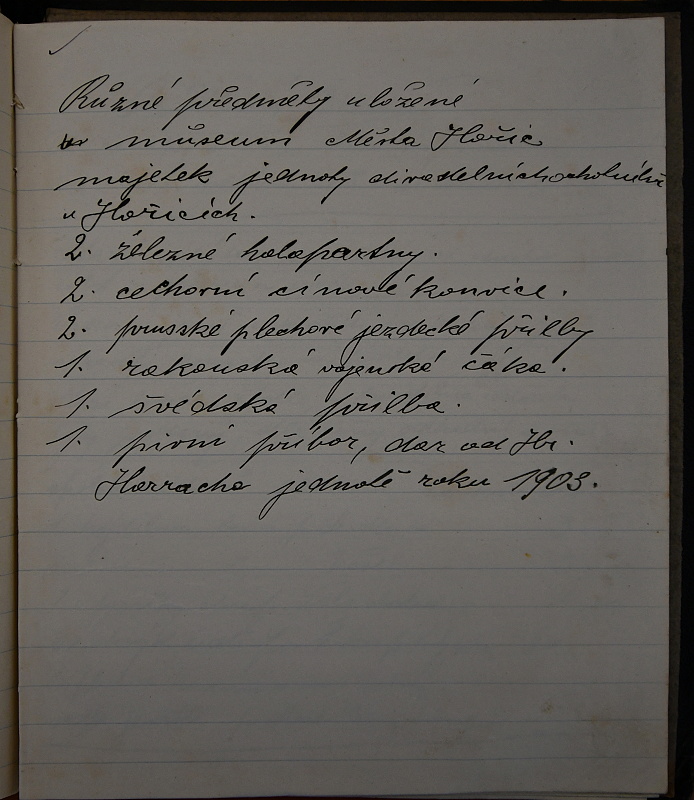 Různé předměty uložené
v museum Města Hořic
majetek jednoty divadelních ochotníků
v Hořicích.
2. železné halapartny.
2. cechovní cínové konvice.
2. prusské plechové jezdecké přilby
1. rakouská vojenská čáka.
1. švédská přilba.
1. pivní příbor, dar od Hr.
Harracha jednotě roku 1903.